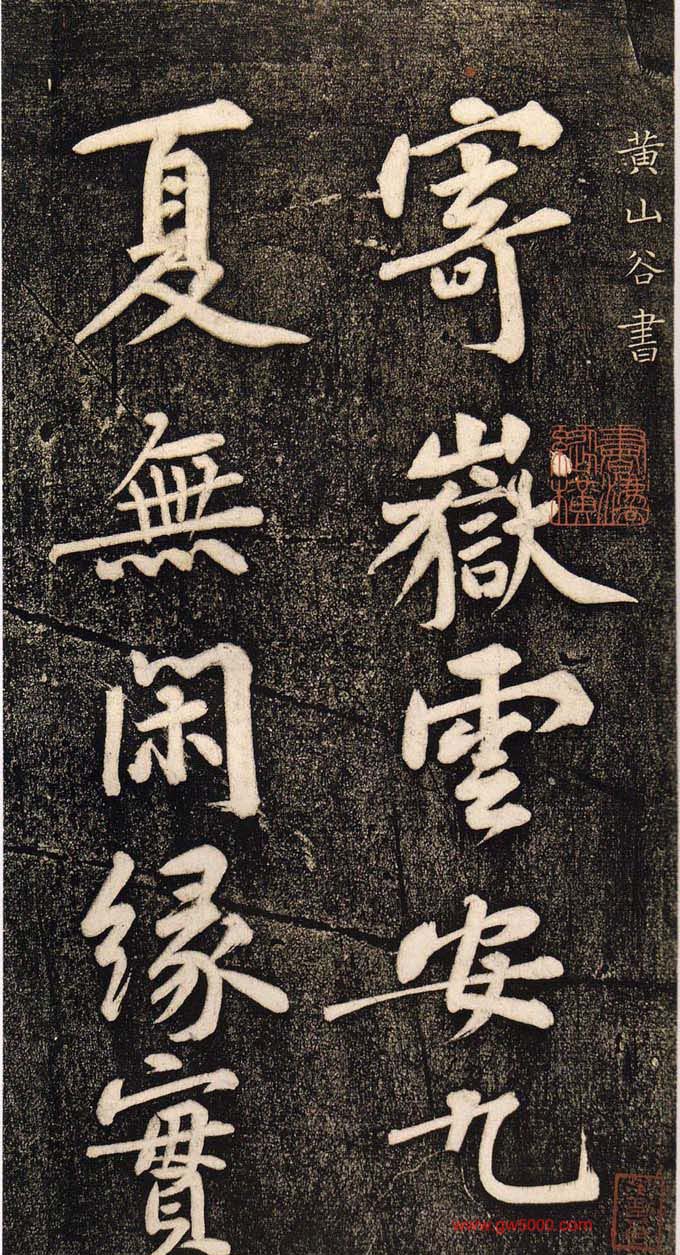 黄山谷書
寄嶽雲安九
夏無閑縁實
www.gw5000.com